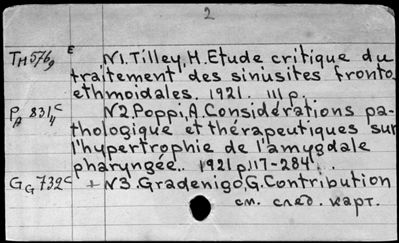 2
TH 576 9 E N1. Tilley, H. Etude critique du
traitement des sinusites fronto
ethmoidales. 1921. 111 p.
PA 831 C 4 N2. Poppi, A. Considérations pa-
thologique et thérapeutiques sur
l'hypertrophie de l'amygdale
pharyngée.. 1921 p. 117-284.
GG 732 C + N3. Gradenigo, G. Contribution
см. след. карт.